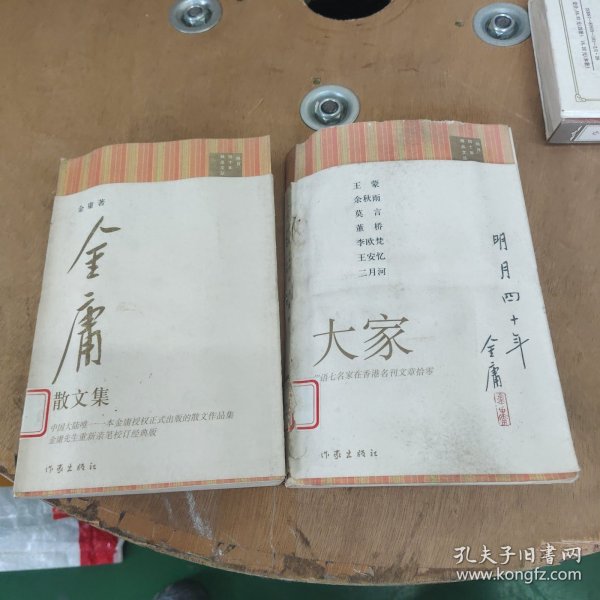 金庸著
金庸
散文集
中国大陆唯一一本金庸授权正式出版的散文作品集
金庸先生重新亲笔校订经典版
作家出版社
王蒙
余秋雨
莫言
董桥
李欧梵
王安忆
二月河
大家
语七名家在香港名刊文章拾零
明月四十年
金庸
作家出版社
孔夫子旧书网
www.kongfz.com